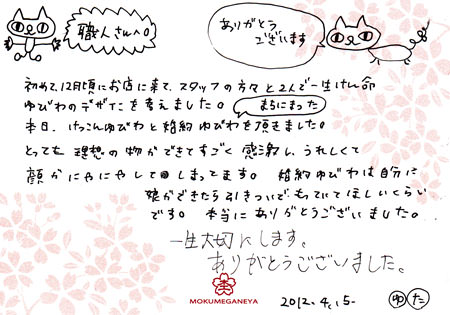 職人さんへ。
ありがとう
ございます
初めて、12月頃にお店に来て、スタッフの方々と2人で一生けん命
ゆびわのデザインを考えました。
まちにまった
本日、けっこんゆびわと婚約ゆびわを頂きました。
とっても理想の物ができてすごく感激し、うれしくて
顔がにやにやして しまってます。 婚約ゆびわは自分に
娘ができたら引きついで、もっていてほしいくらい
です。 本当にありがとうございました。
一生大切にします。
ありがとうございました。
MOKUMEGANEYA
2012. 4. 5-
ゆ た